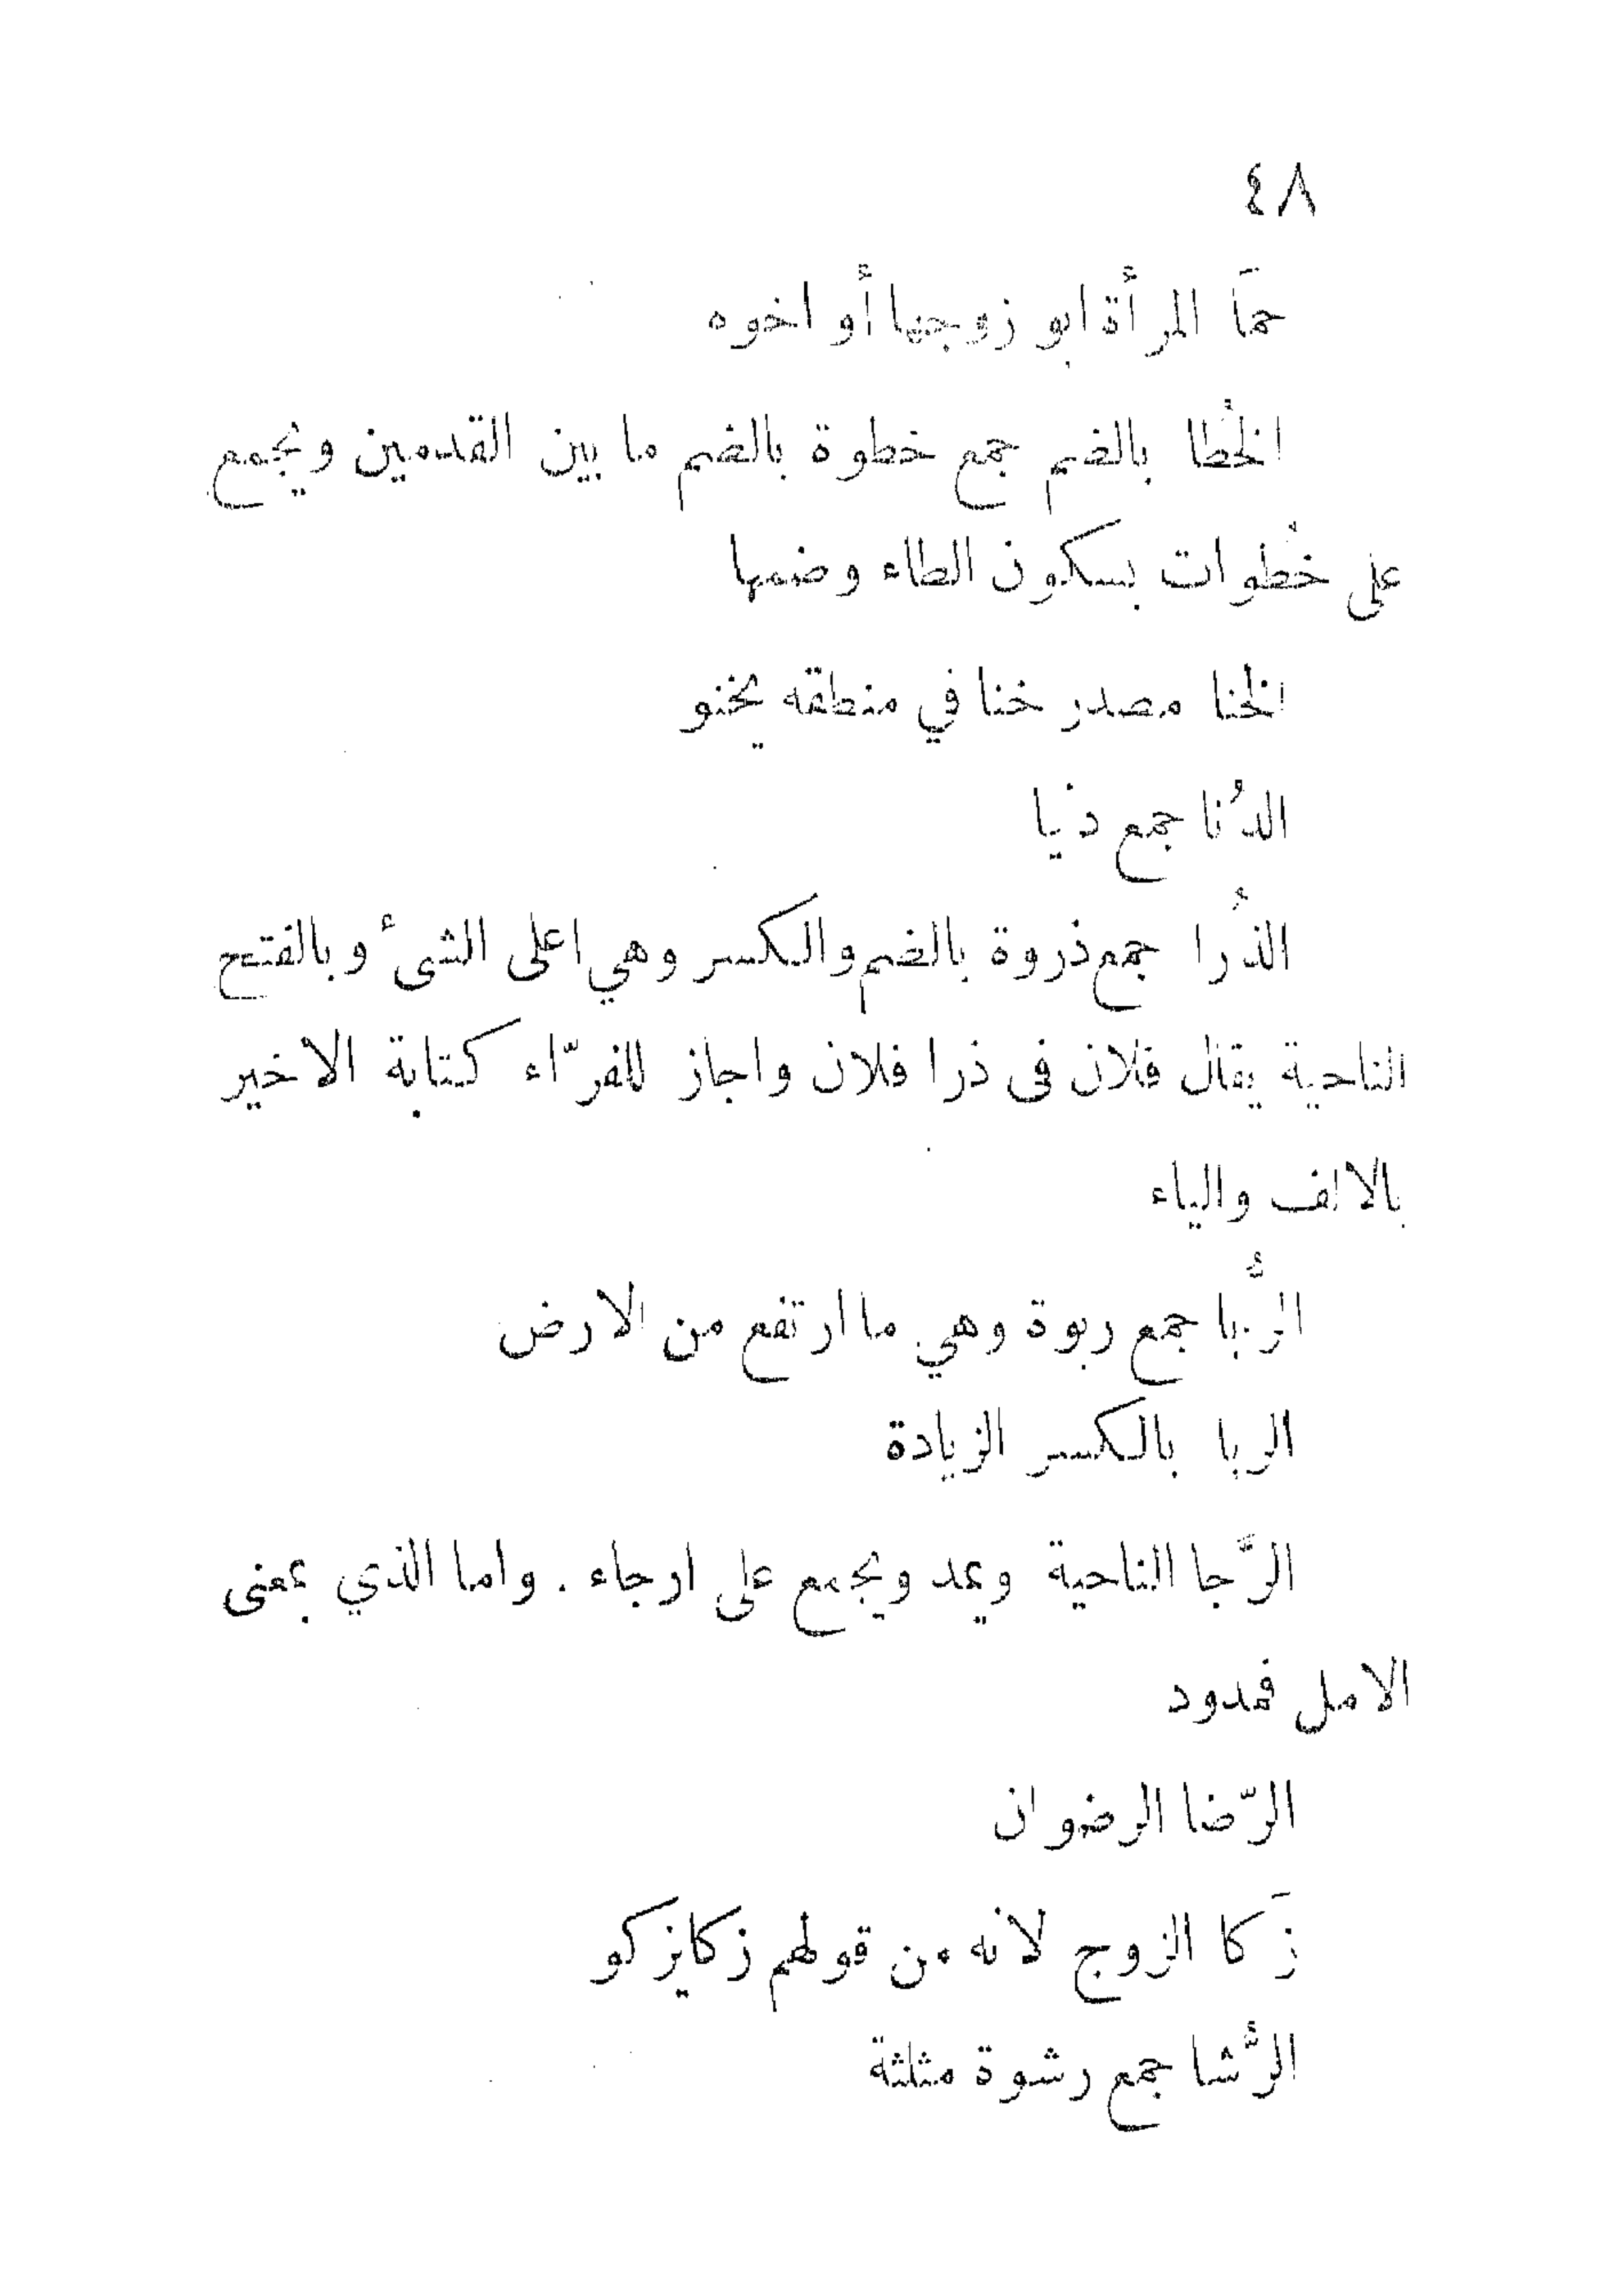 ٤٨
حَمَا المرأة ابو زوجها أو اخوه
الخُطا بالضم جمع خطوة بالضم ما بين القدمين ويجمع
على خُطوات بسكون الطاء وضمها
الخنا مصدر خنا في منطقه يخنو
الدُنا جمع دنيا
الذُرا جمع ذروة بالضم والكسر وهي اعلى الشىء وبالفتح
الناحية يقال فلان فى ذرا فلان واجاز للفرّاء كتابة الاخير
بالالف والياء
الرُّبا جمع ربوة وهي ما ارتفع من الارض
الربا بالكسر الزيادة
الرَّجا الناحية ويمد ويجمع على ارجاء . واما الذي بمعنى
الامل فمدود
الرّضا الرضوان
زَكا الزوج لانه من قولهم زكا يزكو
الرُّشا جمع رشوة مثلثة